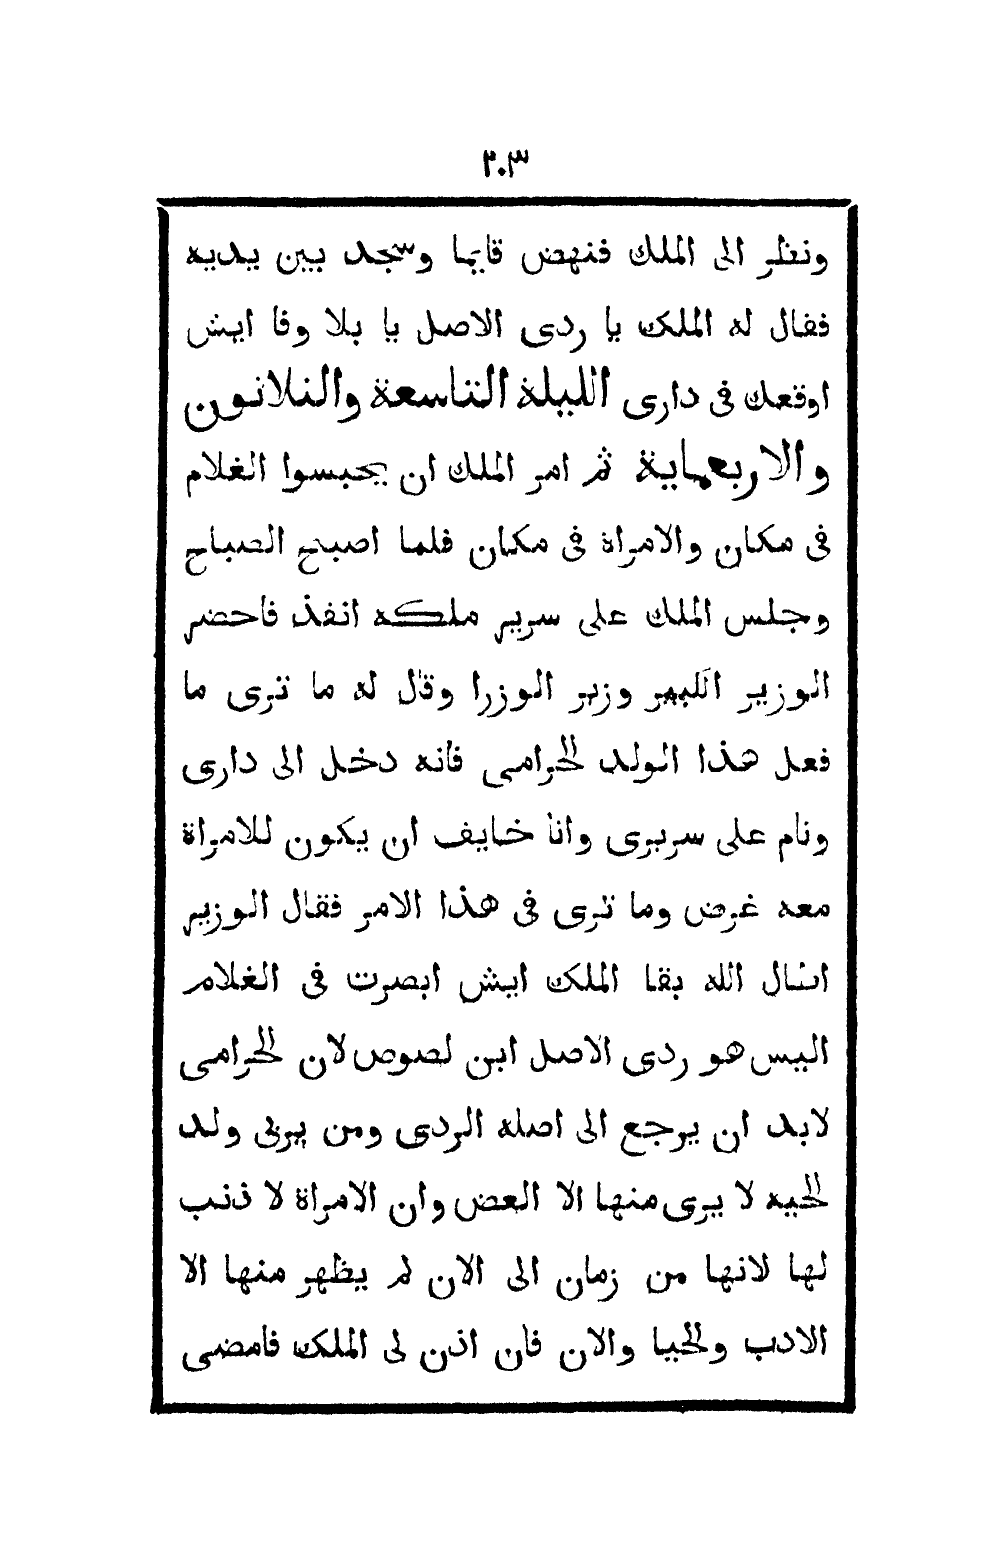 ٢٠٣
ونظر الى الملك فنهض قايما وسجد بين يديه
فقال له الملك يا ردى الاصل يا بلا وفا ايش
اوقعك فى دارى الليلة التاسعة والثلاثون
والاربعماية ثم امر الملك ان يحبسوا الغلام
فى مكان والامراة فى مكان فلما اصبح الصباح
وجلس الملك على سرير ملكه انفذ فاحضر
الوزير الكبير وزير الوزرا وقال له ما ترى ما
فعل هذا الولد الحرامى فانه دخل الى دارى
ونام على سريرى وانا خايف ان يكون للامراة
معه غرض وما ترى فى هذا الامر فقال الوزير
اسال الله بقا الملك ايش ابصرت فى الغلام
اليس هو ردى الاصل ابن لصوص لان الحرامى
لابد ان يرجع الى اصله الردى ومن يربى ولد
الحيه لا يرى منها الا العض وان الامراة لا ذنب
لها لانها من زمان الى الان لم يظهر منها الا
الادب والحيا والان فان اذن لى الملك فامضى